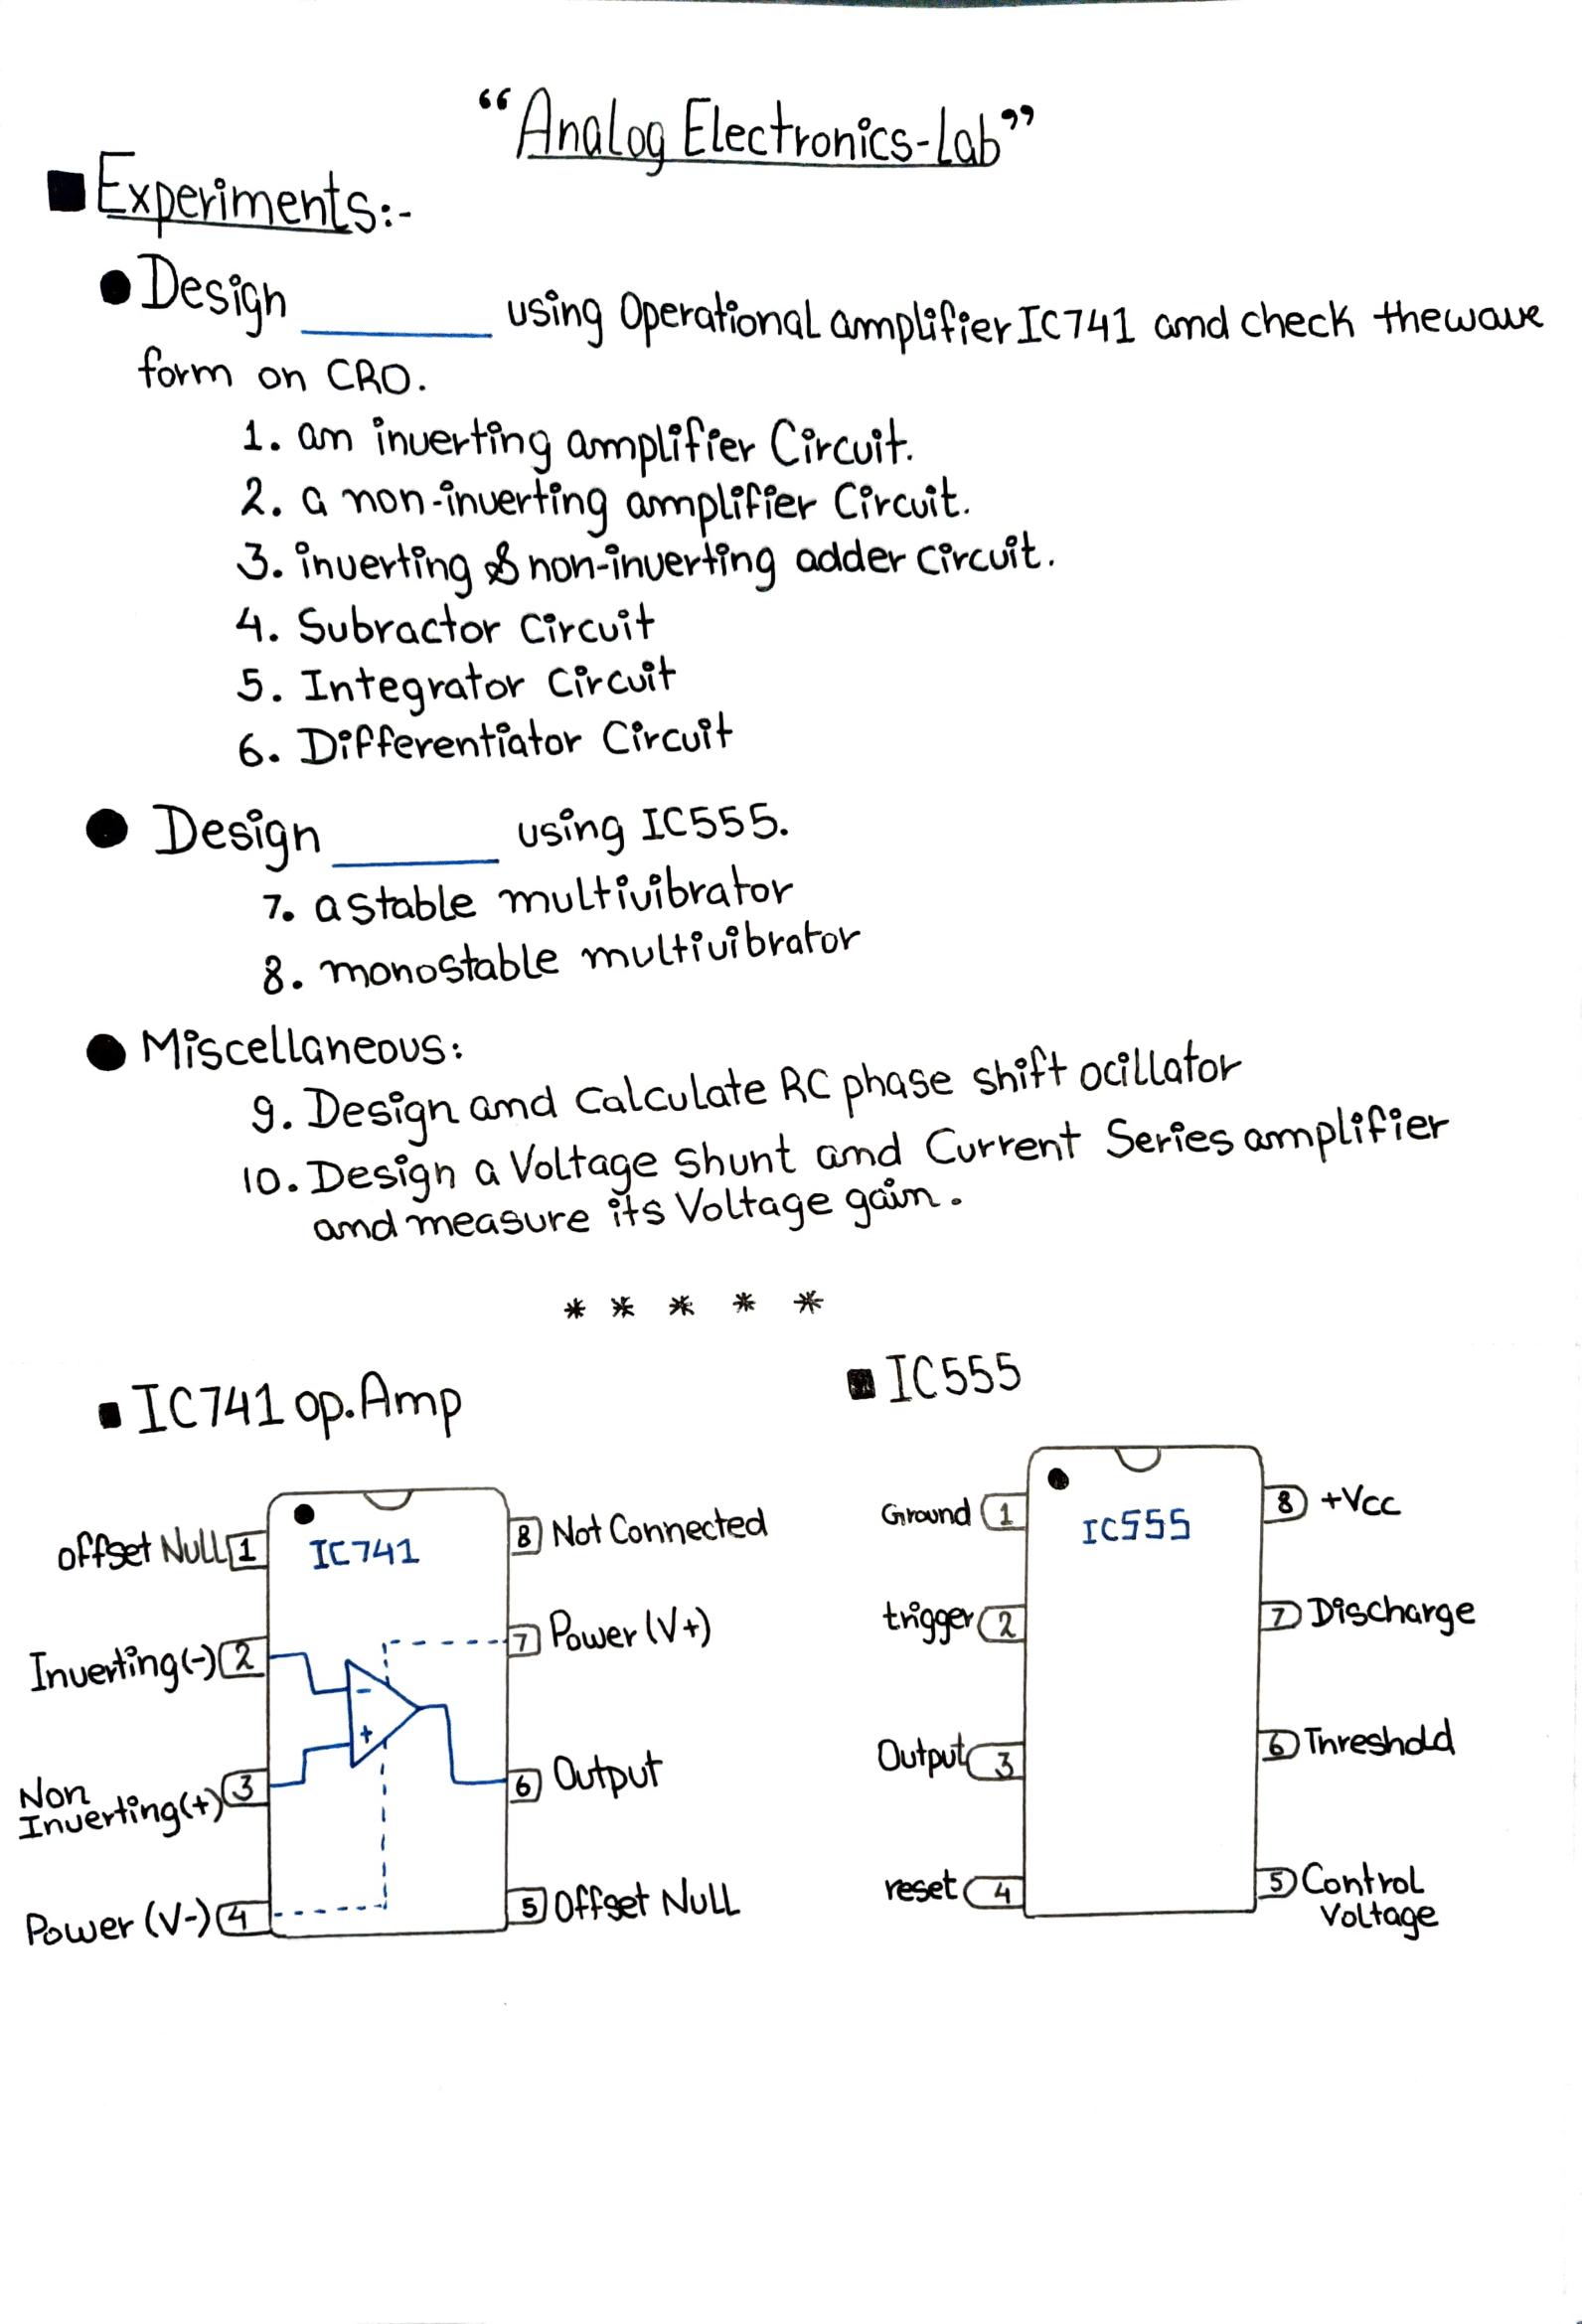 “Analog Electronics-Lab”
Experiments:-
Design ______ using Operational amplifier IC741 and check the wave
form on CRO.
1. an inverting amplifier Circuit.
2. a non-inverting amplifier Circuit.
3. inverting & non-inverting adder circuit.
4. Subractor Circuit
5. Integrator Circuit
6. Differentiator Circuit
Design ______ using IC555.
7. astable multivibrator
8. monostable multivibrator
Miscellaneous:
9. Design and Calculate RC phase shift ocillator
10. Design a Voltage shunt and Current Series amplifier
and measure its Voltage gain.
* * * * *
IC741 op.Amp
offset Null 1
Inverting(-) 2
Non
Inverting(+) 3
Power (V-) 4
IC741
8 Not Connected
7 Power (V+)
6 Output
5 Offset Null
-
+
IC555
Ground 1
trigger 2
Output 3
reset 4
IC555
8 +Vcc
7 Discharge
6 Threshold
5 Control
Voltage